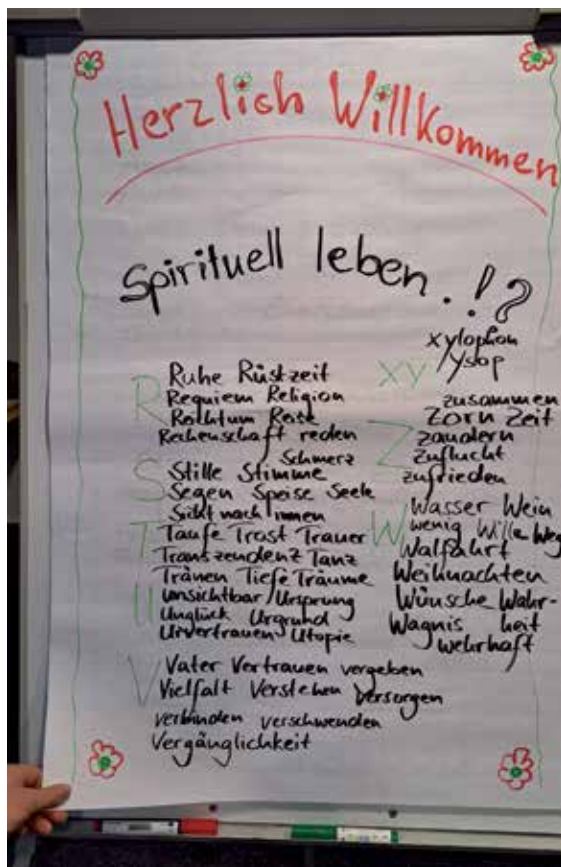 Herzlich Willkommen
Spirituell leben.!?
R
Ruhe Rüstzeit
Requiem Religion
Reichtum Reise
Rechenschaft reden
S
Schmerz
Stille Stimme
Segen Speise Seele
Sicht nach innen
T
Taufe Trost Trauer
Transzendenz Tanz
Tränen Tiefe Träume
U
unsichtbar Ursprung
Unglück Urgrund
Urvertrauen Utopie
V
Vater Vertrauen vergeben
Vielfalt Verstehen versorgen
verbinden verschwenden
Vergänglichkeit
xy
xylophon
Ysop
Z
zusammen
Zorn Zeit
zaudern
Zuflucht
zufrieden
W
Wasser Wein
wenig Wille Weg
Walfahrt
Weihnachten
Wünsche Wahr-
Wagnis heit
wehrhaft